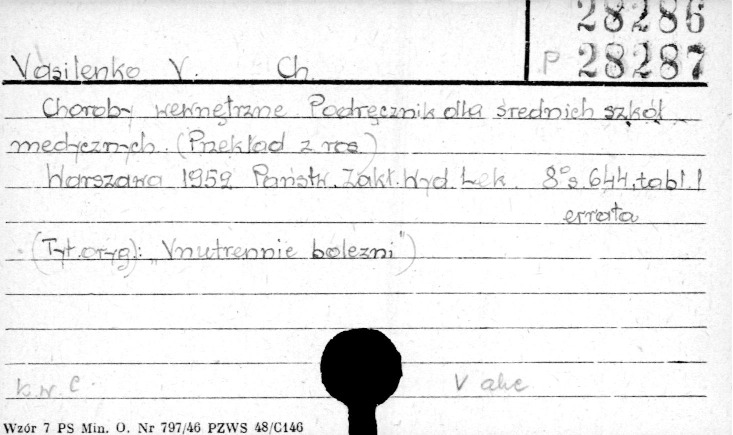 28286
P 28287
Vasilenko V. Ch.
Choroby wewnętrzne Podręcznik dla średnich szkół
medycznych. (Przekład z ros)
Warszawa 1952 Państw. Zakł. Wyd. Lek. 8° s. 644, tabl. 1
errata
(Tyt. oryg): „Vnutrennie bolezni")
k.w. C. V akc
Wzór 7 PS Min. O. Nr 797/46 PZWS 48/C146